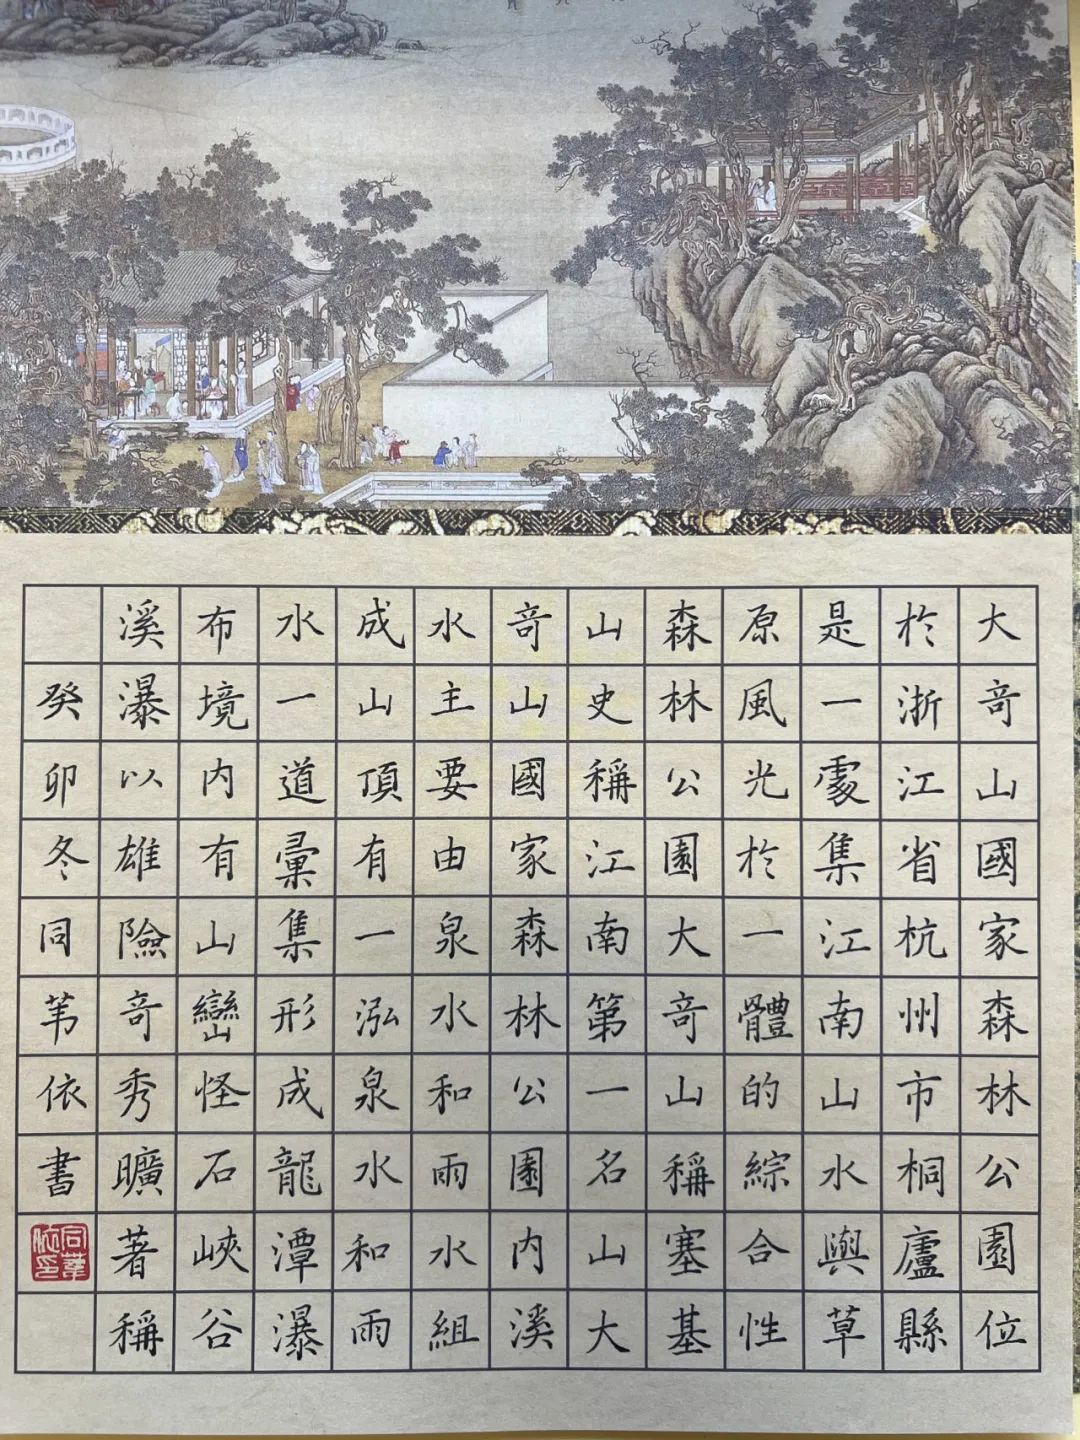 大奇山國家森林公園位
於浙江省杭州市桐廬縣
是一處集江南山水與草
原風光於一體的綜合性
森林公園大奇山稱塞基
山史稱江南第一名山大
奇山國家森林公園内溪
水主要由泉水和雨水組
成山頂有一泓泉水和雨
水一道彙集形成龍潭瀑
布境内有山巒怪石峽谷
溪瀑以雄險奇秀曠著稱
癸卯冬同苇依書